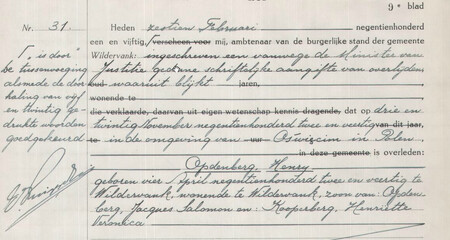 9e blad
Nr. 31. Heden zestien Februari negentienhonderd
een en vijftig, verscheen voor mij, ambtenaar van de burgerlijke stand der gemeente
Wildervank: ingeschreven een vanwege de Minister van
Justitie gedane schriftelijke aangifte van overlijden,
oud waaruit blijkt jaren,
wonende te
die verklaarde, daarvan uit eigen wetenschap kennis dragende, dat op drie en
twintig November negentienhonderd twee en veertig van dit jaar,
te in de omgeving van uur Oświęcim in Polen
in deze gemeente is overleden:
Opdenberg, Henry
geboren vier April negentienhonderd twee en veertig te
Wildervank, wonende te Wildervank, zoon van: Opden-
berg, Jacques Salomon en: Kooperberg, Henriette
Veronica
"is door"
de tussenvoeging
alsmede de door-
haling van vijf
en twintig ge-
drukte woorden
goedgekeurd